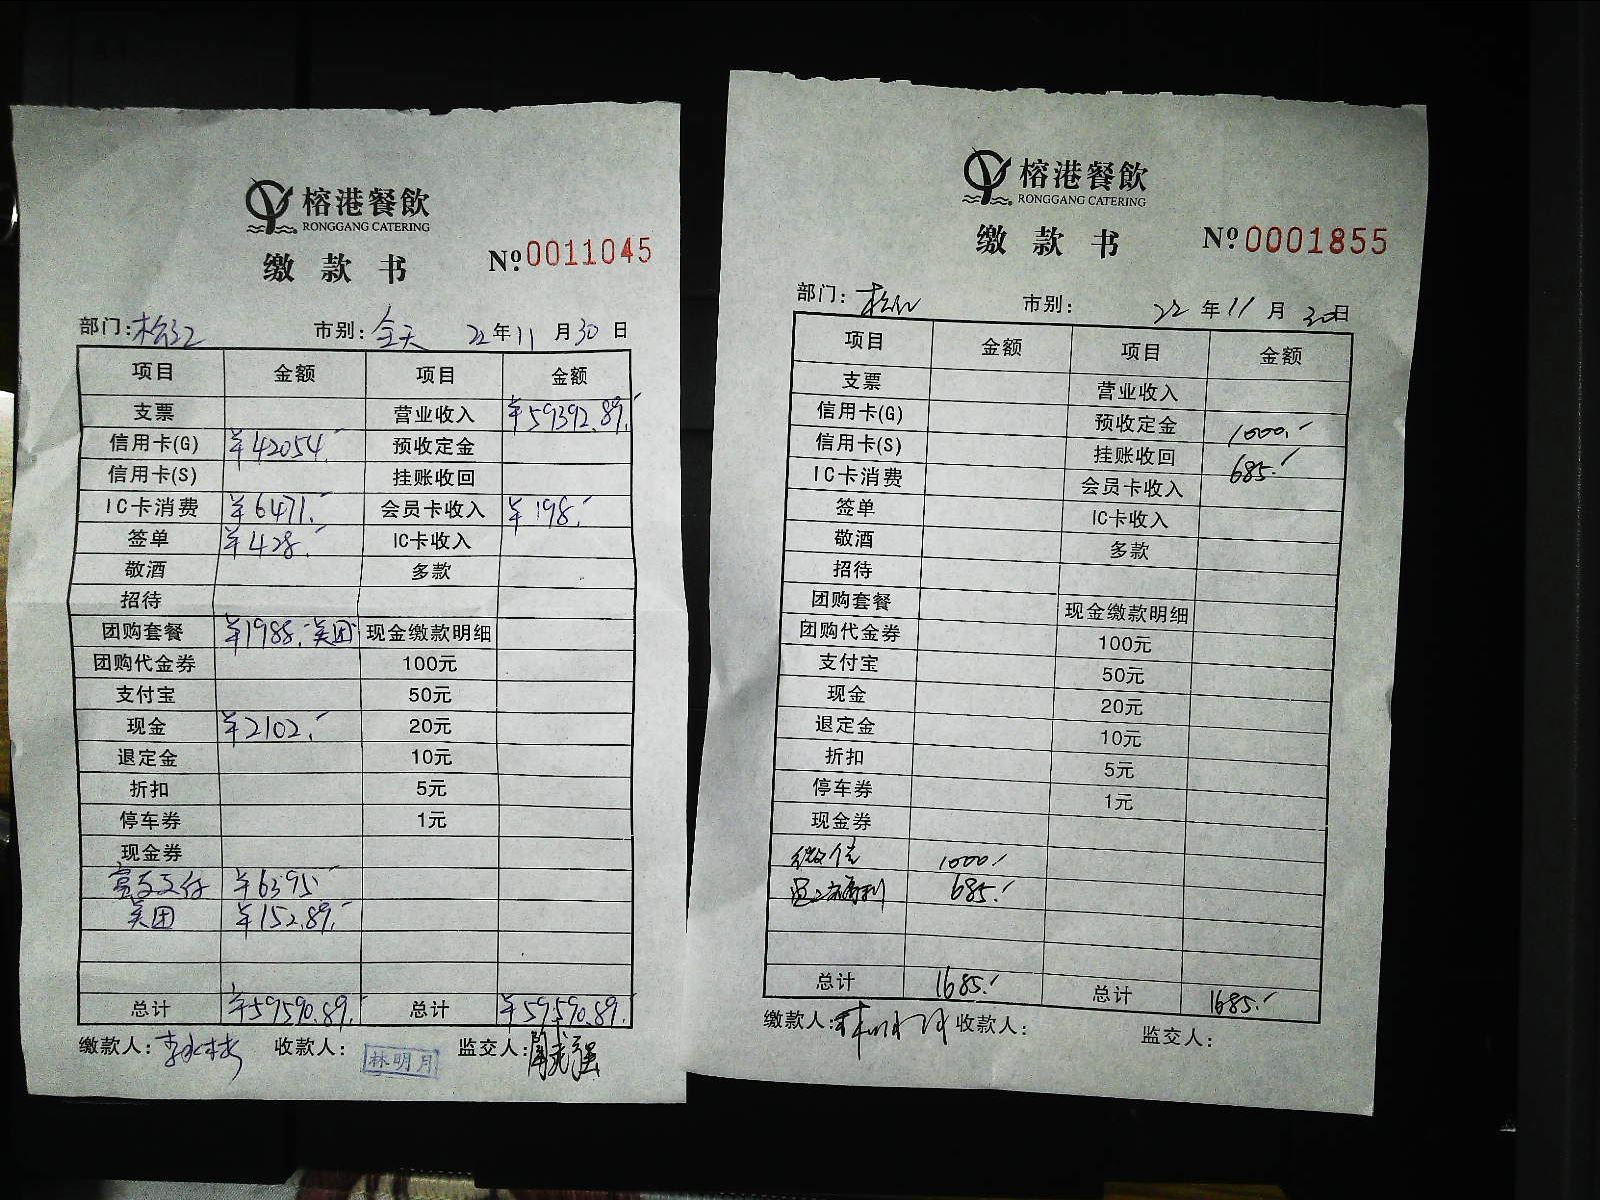 榕港餐飲
RONGGANG CATERING
缴款书 №0011045
部门:松江 市别:全天 22年11月30日
项目 金额 项目 金额
支票 营业收入 ¥59392.89.-
信用卡(G) ¥42054.- 预收定金
信用卡(S) 挂账收回
IC卡消费 ¥6471.- 会员卡收入 ¥198.-
签单 ¥428.- IC卡收入
敬酒 多款
招待
团购套餐 ¥1988.-美团 现金缴款明细
团购代金券 100元
支付宝 50元
现金 ¥2102.- 20元
退定金 10元
折扣 5元
停车券 1元
现金券
支付 ¥6395.-
美团 ¥152.89.-
总计 ¥59590.89.- 总计 ¥59590.89.-
缴款人: 收款人:林明月 监交人:
榕港餐飲
RONGGANG CATERING
缴款书 №0001855
部门:松江 市别: 22年11月30日
项目 金额 项目 金额
支票 营业收入
信用卡(G) 预收定金 1000.-
信用卡(S) 挂账收回 685.-
IC卡消费 会员卡收入
签单 IC卡收入
敬酒 多款
招待
团购套餐 现金缴款明细
团购代金券 100元
支付宝 50元
现金 20元
退定金 10元
折扣 5元
停车券 1元
现金券
微信 1000.-
员工福利 685.-
总计 1685.- 总计 1685.-
缴款人: 收款人: 监交人: